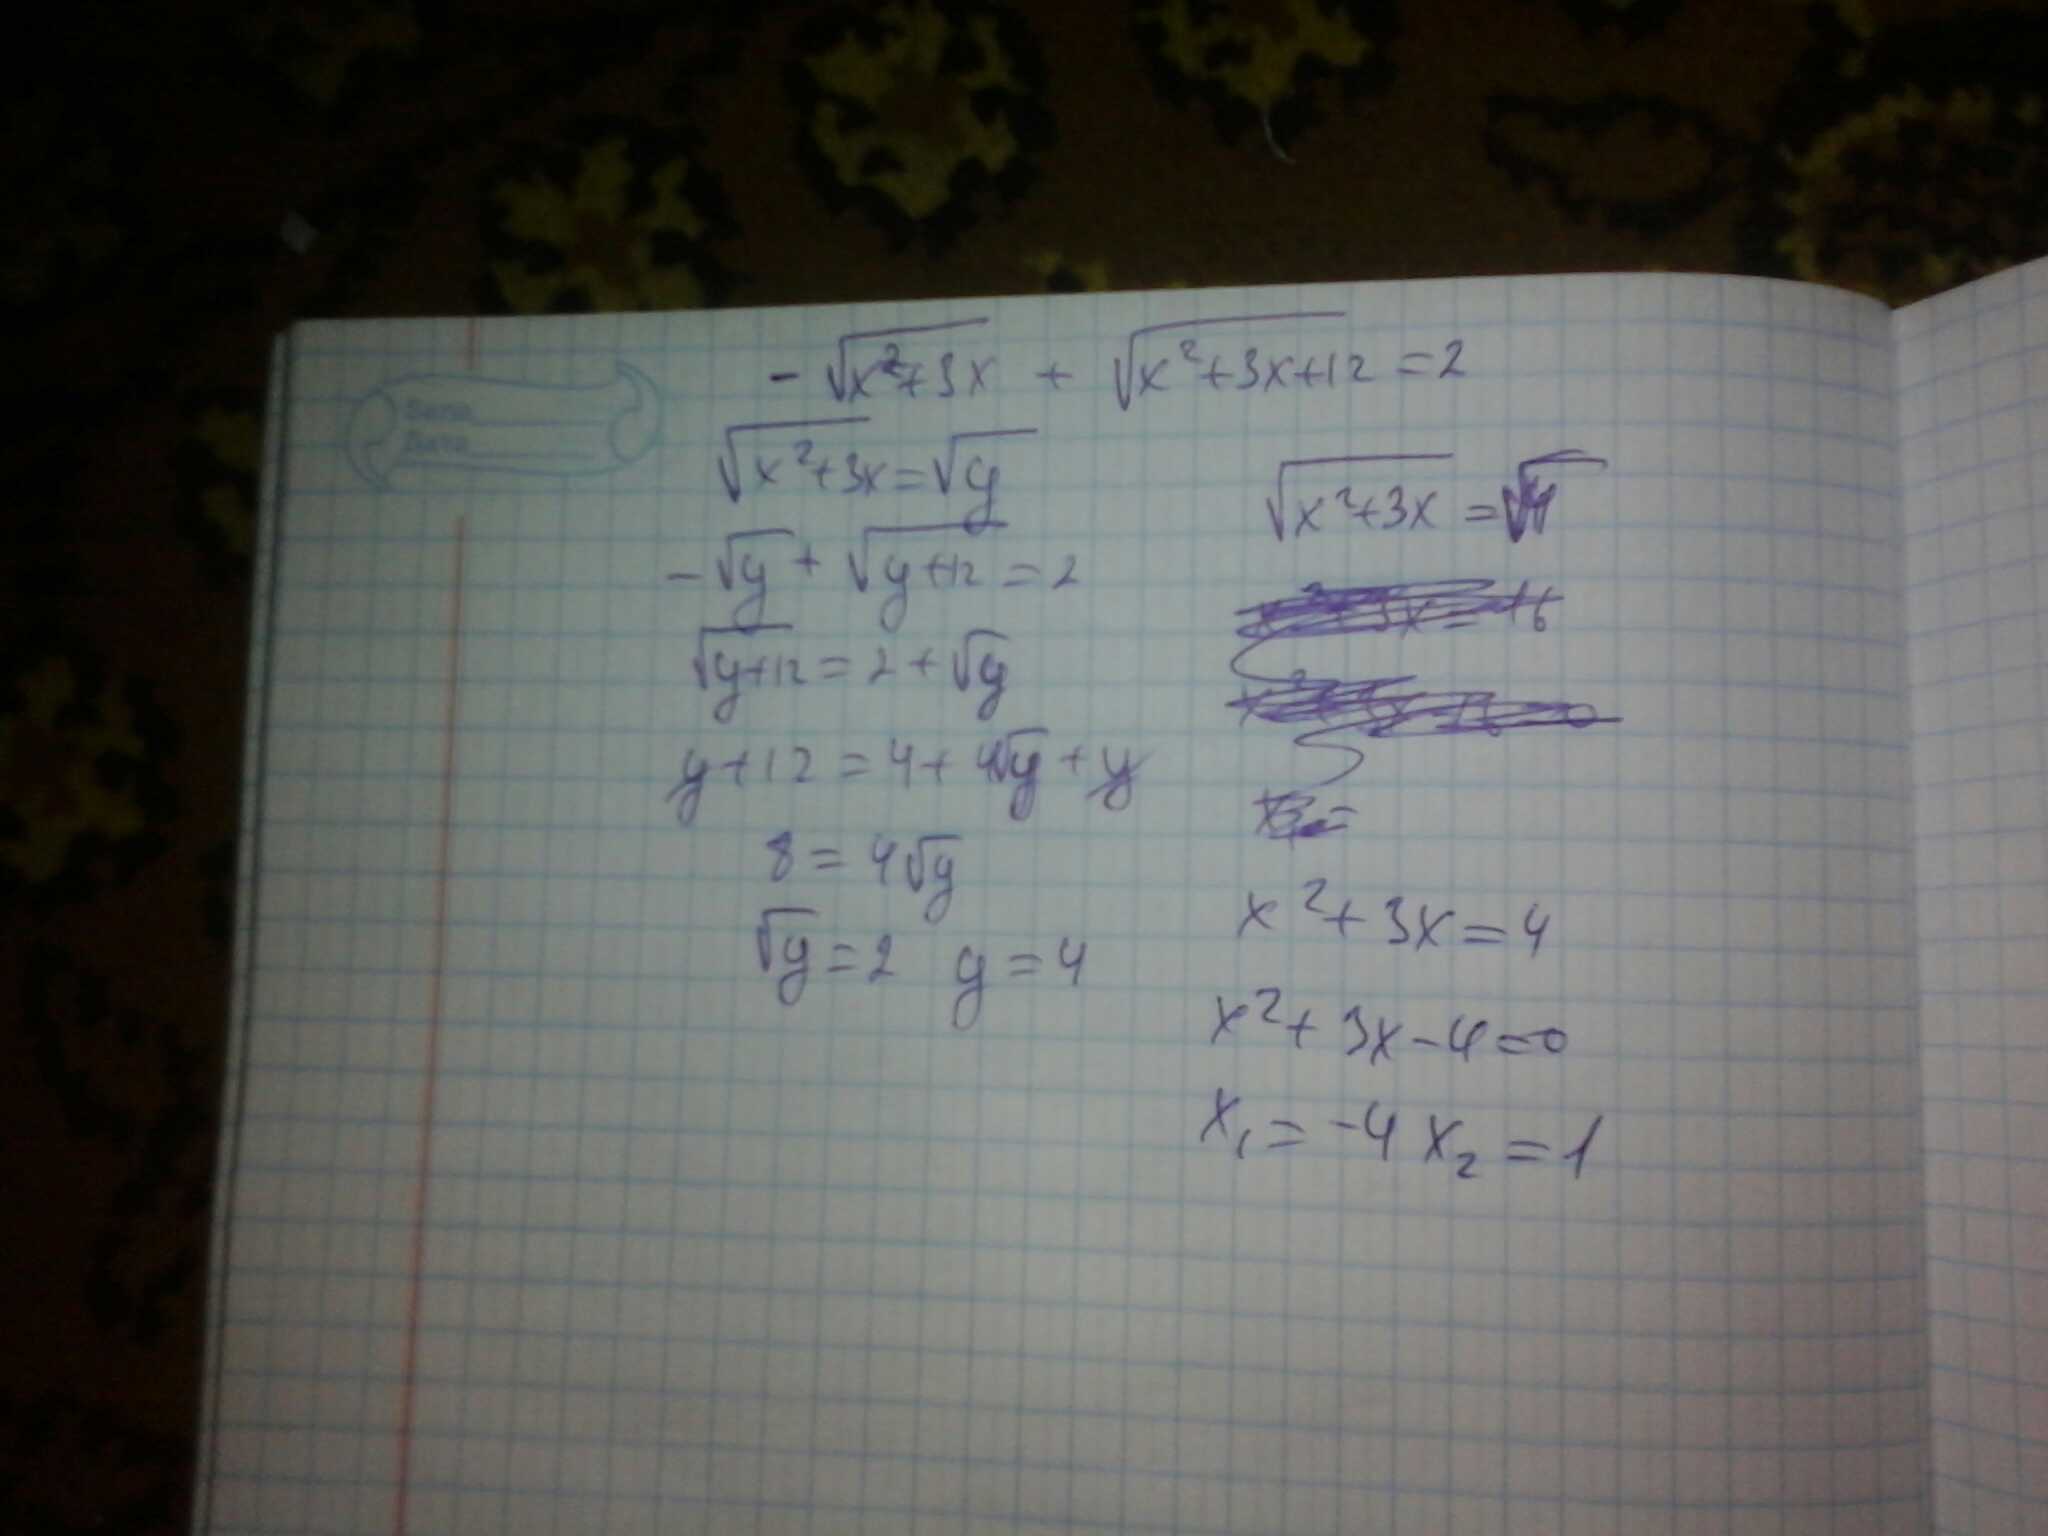 -√x²+3x + √x²+3x+12 = 2
√x²+3x = √y
-√y + √y+12 = 2
√y+12 = 2 + √y
y+12 = 4 + 4√y + y
8 = 4√y
√y = 2 y = 4
√x²+3x = √4
x²+3x = 4
x²+3x-4=0
x₁ = -4 x₂ = 1